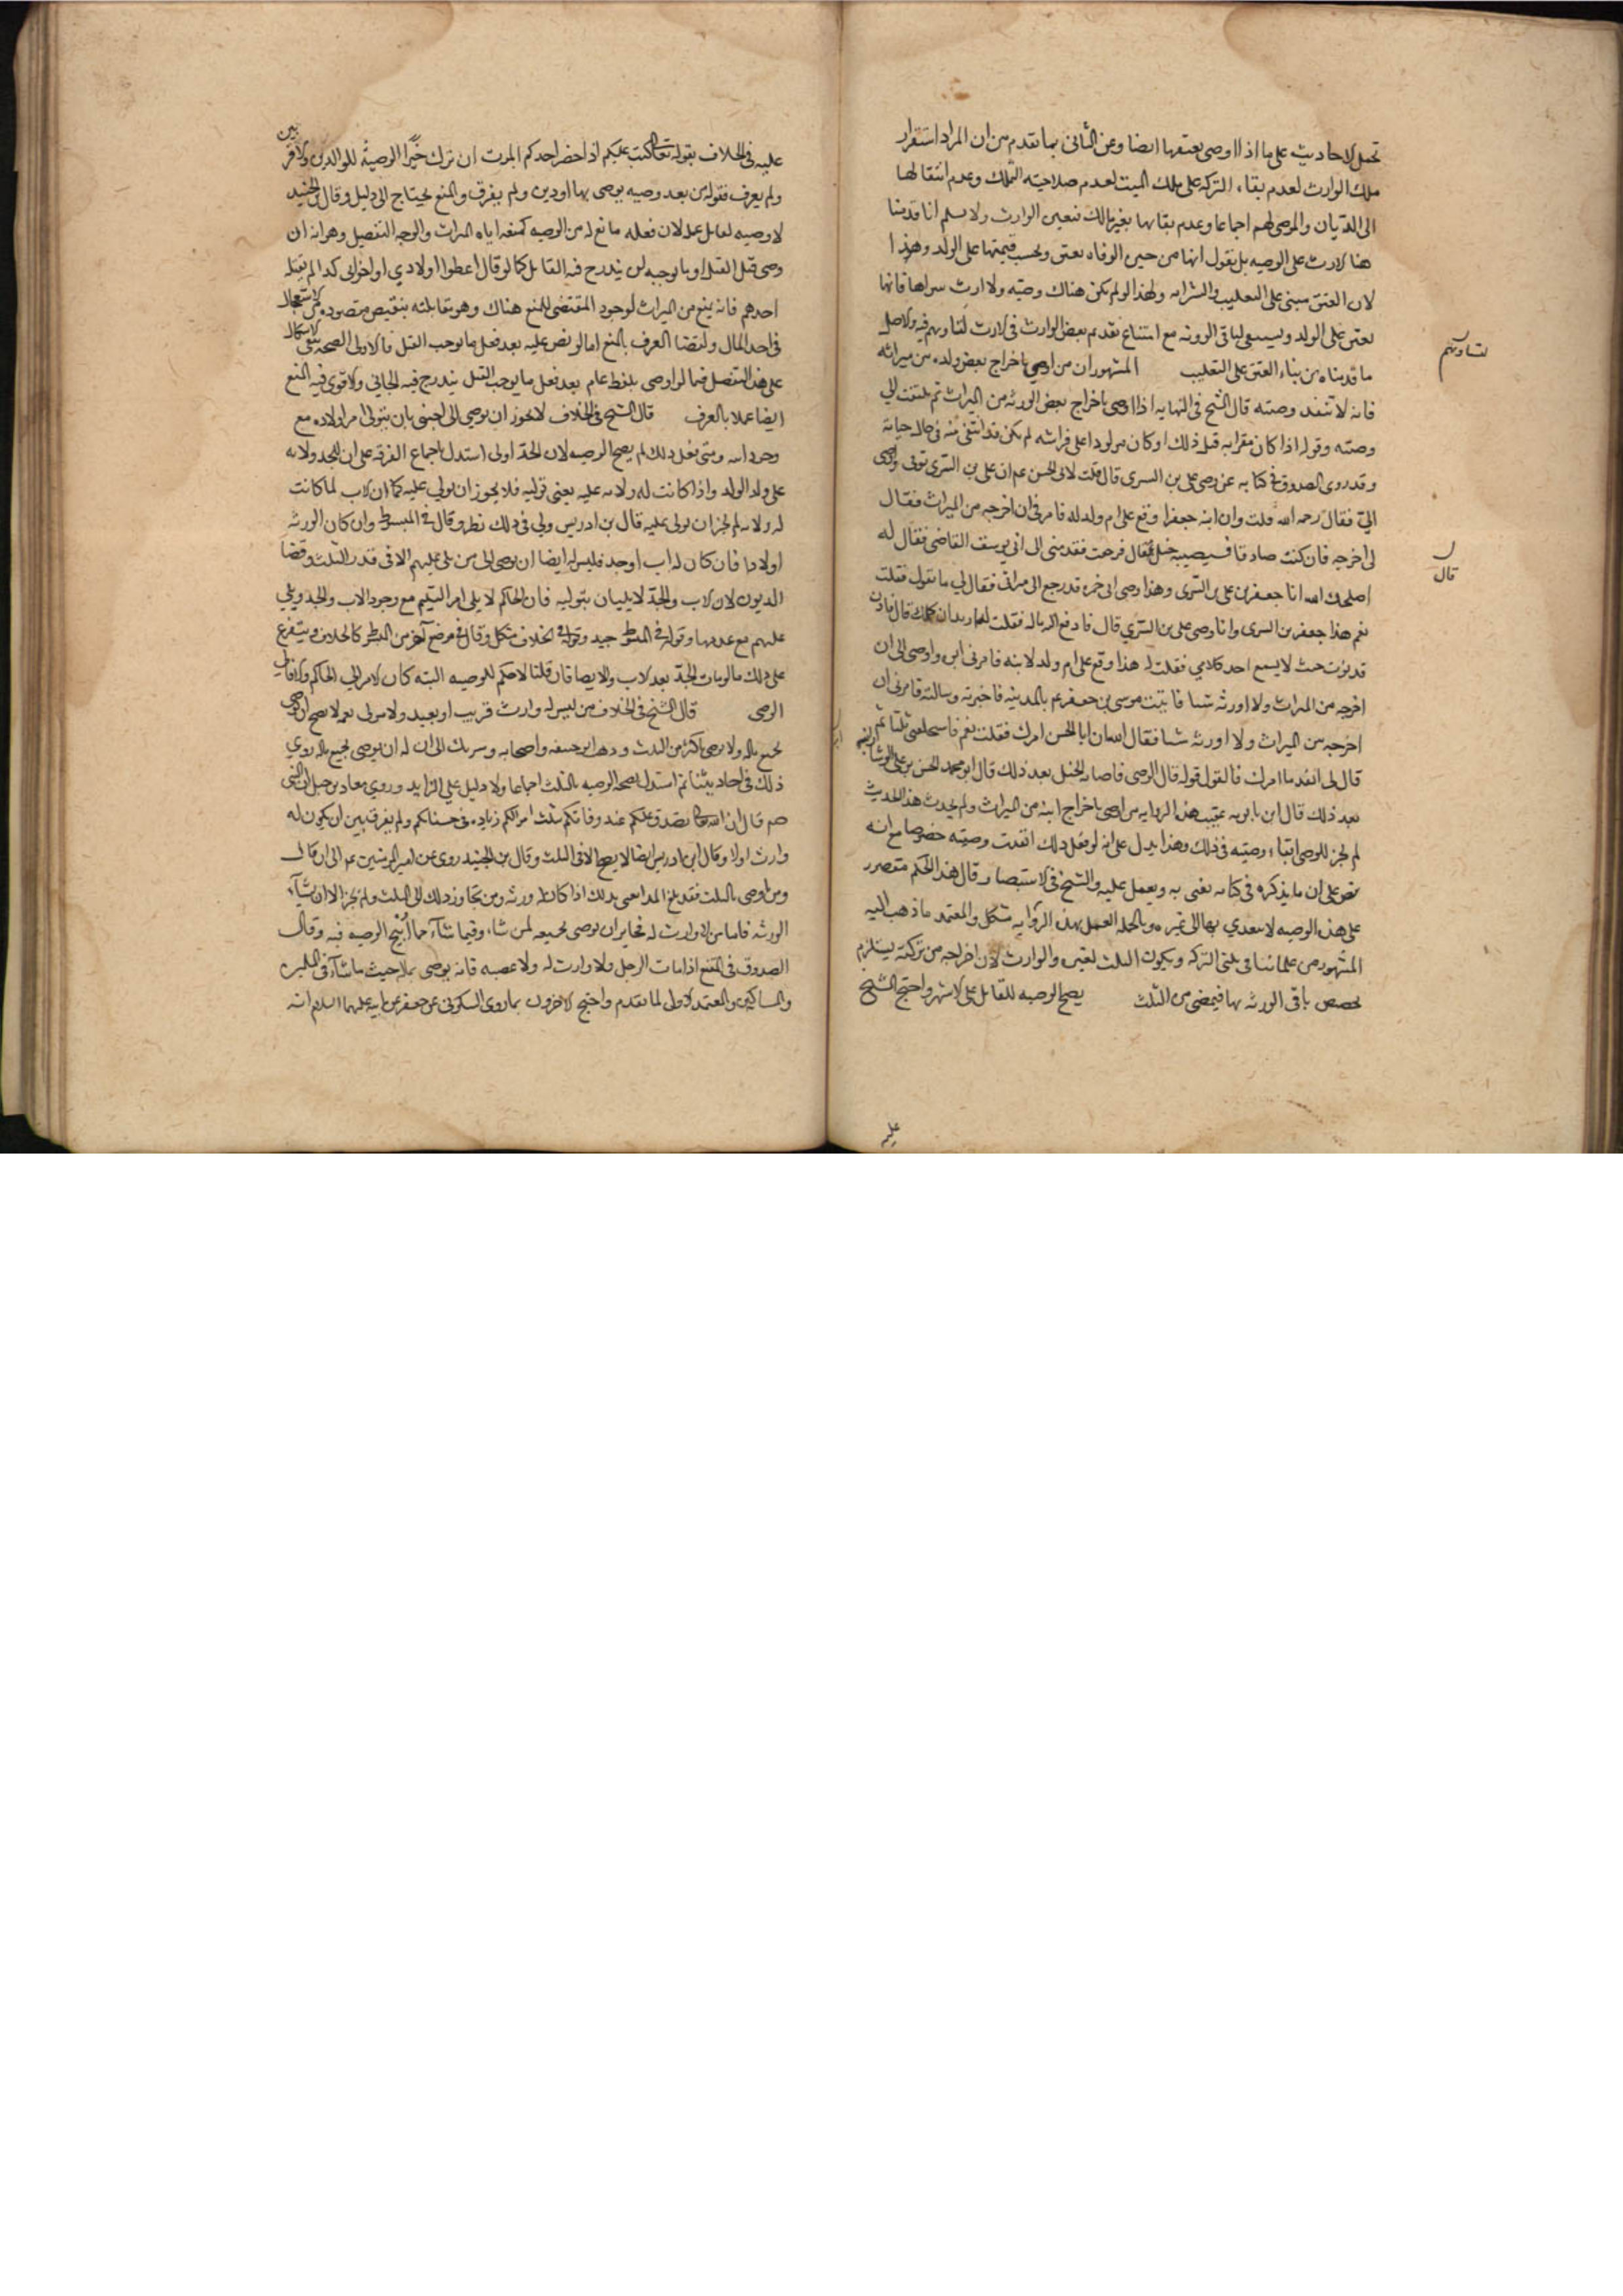 تحمل الاحاديث على ما اذا اوصى بعتقها ايضا وعن الثانى بما تقدم من ان المراد استقرار
ملك الوارث لعدم بقاء التركه على ملك الميت لعدم صلاحيته للتملك وعدم انتقالها
الى الديان والموصى لهم اجماعا وعدم بقائها بغير مالك فتعين الوارث ولا نسلم انا قدمنا
هنا الارث على الوصيه بل نقول انها من حين الوفاه تعتق وتحسب قيمتها على الولد وهذا
لان العتق مبنى على التغليب والسرايه ولهذا لو لم يكن هناك وصيه ولا ارث سواها فانها
تعتق على الولد ويسعى لباقى الورثه مع امتناع تقديم بعض الوارث فى الارث لتساويهم فيه والاصل
لتساويهم
ما قدمناه من بناء العتق على التغليب المشهور ان من اوصى باخراج بعض ولده من ميراثه
فانه لا تنفذ وصيته قال الشيخ فى النهايه اذا اوصى باخراج بعض الورثه من الميراث لم يلتفت الى
وصيته وقوله اذا كان مقرا به قبل ذلك او كان مولودا على فراشه لم يكن قد انتفى منه فى حال حياته
وقد روى الصدوق فى كتابه عن وصى على بن السرى قال قلت لابى الحسن عم ان على بن السرى توفى واوصى
الىّ فقال رحمه الله قلت وان ابنه جعفرا وقع على ام ولد له فامرنى ان اخرجه من الميراث فقال
لى اخرجه فان كنت صادقا فسيصيبه خبل قال فرجعت فقدمنى الى ابى يوسف القاضى فقال له
قال
اصلحك الله انا جعفر بن على بن السرى وهذا وصى ابى فمره فليدفع الى ميراثى فقال لى ما تقول فقلت
نعم هذا جعفر بن السرى وانا وصى على بن السرى قال فادفع اليه ماله فقلت له اريد ان اكلمك قال فادن
فدنوت حيث لا يسمع احد كلامى فقلت له هذا وقع على ام ولد لابيه فامرنى ابوه واوصى الى ان
اخرجه من الميراث ولا اورثه شيا فاتيت موسى بن جعفر عم بالمدينه فاخبرته وسالته فامرنى ان
اخرجه من الميراث ولا اورثه شيا فقال الله ان ابا الحسن امرك فقلت نعم فاستحلفنى ثلثا ثم
قال لى انفذ ما امرك فالقول قوله قال الوصى فاصابه الخبل بعد ذلك قال ابو محمد الحسن بن على الوشا رايته
بعد ذلك قال ابن بابويه عقيب هذه الروايه من اوصى باخراج ابنه من الميراث ولم يحدث هذا الحديث
لم يجز للوصى انفاذ وصيته فى ذلك وهذا يدل على انه لو فعل ذلك انفذت وصيته خصوصا مع انه
نص على ان ما يذكره فى كتابه يفتى به ويعمل عليه والشيخ فى الاستبصار قال هذا الحكم مقصور
على هذه الوصيه لا يتعدى بها الى غيره وبالجمله العمل بهذه الروايه مشكل والمعتمد ما ذهب اليه
المشهور من علمائنا فى ثلثى التركه ويكون الثلث لغيره والوارث لان اخراجه من تركته يستلزم
تخصيص باقى الورثه بها فيمضى من الثلث يصح الوصيه للقاتل على الاشهر واحتج الشيخ
عليه
عليه فى الخلاف بقوله تعالى كتب عليكم اذا حضر احدكم الموت ان ترك خيرا الوصية للوالدين والاقربين
ولم يفرق وقوله من بعد وصيه يوصى بها او دين ولم يفرق والمنع يحتاج الى دليل وقال ابن الجنيد
لا وصيه لقاتل عمد لان فعله مانع له من الوصيه كمنعه اياه الميراث والوجه التفصيل وهو انه ان
وصى قبل القتل او ما يوجبه لمن يندرج فيه القاتل كما لو قال اعطوا اولادى او اخوانى كذا ثم قتله
احدهم فانه يمنع من الميراث لوجود المقتضى للمنع هناك وهو مقابلته بنقيض مقصوده من استعجال
فى اخذ المال ولقضا العرف بالمنع اما لو نص عليه بعد فعل ما يوجب القتل فالاولى الصحه بقى الاشكال
على هذا التفصيل فيما لو اوصى بلفظ عام بعد فعل ما يوجب القتل يندرج فيه الجانى والاقوى فيه المنع
ايضا عملا بالعرف قال الشيخ فى الخلاف لا يجوز ان يوصى الى اجنبى بان يتولى امر اولاده مع
وجود ابيه ومتى فعل ذلك لم يصح الوصيه لان الجد اولى استدل باجماع الفرقه على ان للجد ولايه
على ولد الولد واذا كانت له ولايه عليه يعنى توليه فلا يجوز ان يولى عليه كما ان الاب لما كانت
له ولايه لم يجز ان يولى عليه قال بن ادريس ولى فى ذلك نظر وقال فى المبسوط وان كان الورثه
اولادا فان كان له اب او جد فليس له ايضا ان يوصى الى من يلى عليهم الا فى قدر الثلث وقضا
الديون لان الاب والجد لا يليان بتوليه فان الحاكم لا يلى امر اليتيم مع وجود الاب والجد ويلى
عليهم مع عدمهما وقوله فى المبسوط جيد وقوله فى الخلاف مشكل وقال فى موضع آخر من المبسوط كالخلاف ويتفرع
على ذلك ما لو مات الجد بعد الاب ولا ايصا فان قلنا لا حكم للوصيه البته كان الامر الى الحاكم والا فالى
الوصى قال الشيخ فى الخلاف من ليس له وارث قريب او بعيد ولا مولى نعمه لا يصح ان يوصى
بجميع ماله ولا يوصى باكثر من الثلث وذهب ابو حنيفه واصحابه وشريك الى ان له ان يوصى بجميع ماله روى
ذلك فى احاديثنا ثم استدل بصحه الوصيه بالثلث اجماعا ولا دليل على الزايد وروى معاذ بن جبل ان النبى
صم قال ان الله تعالى تصدق عليكم عند وفاتكم بثلث اموالكم زياده فى حسناتكم ولم يفرق بين ان يكون له
وارث او لا وقال ابن ادريس ايضا لا يصح الا فى الثلث وقال بن الجنيد روى عن امير المومنين عم الى ان قال
ومن اوصى بالثلث فقد بلغ المدا يعنى بذلك اذا كان له ورثه ومن تجاوز ذلك الى الثلث ولم يجز الا ان يشاء
الورثه فاما من لا وارث له فجايز ان يوصى بجميعه لمن شاء وفيما شآء مما ابيح الوصيه فيه وقال
الصدوق فى المقنع اذا مات الرجل ولا وارث له ولا عصبه فانه يوصى بماله حيث ما شآء فى المسلمين
والمساكين والمعتمد الاول لما تقدم واحتج الاخرون بما روى السكونى عن جعفر عن ابيه عليهما السلام انه